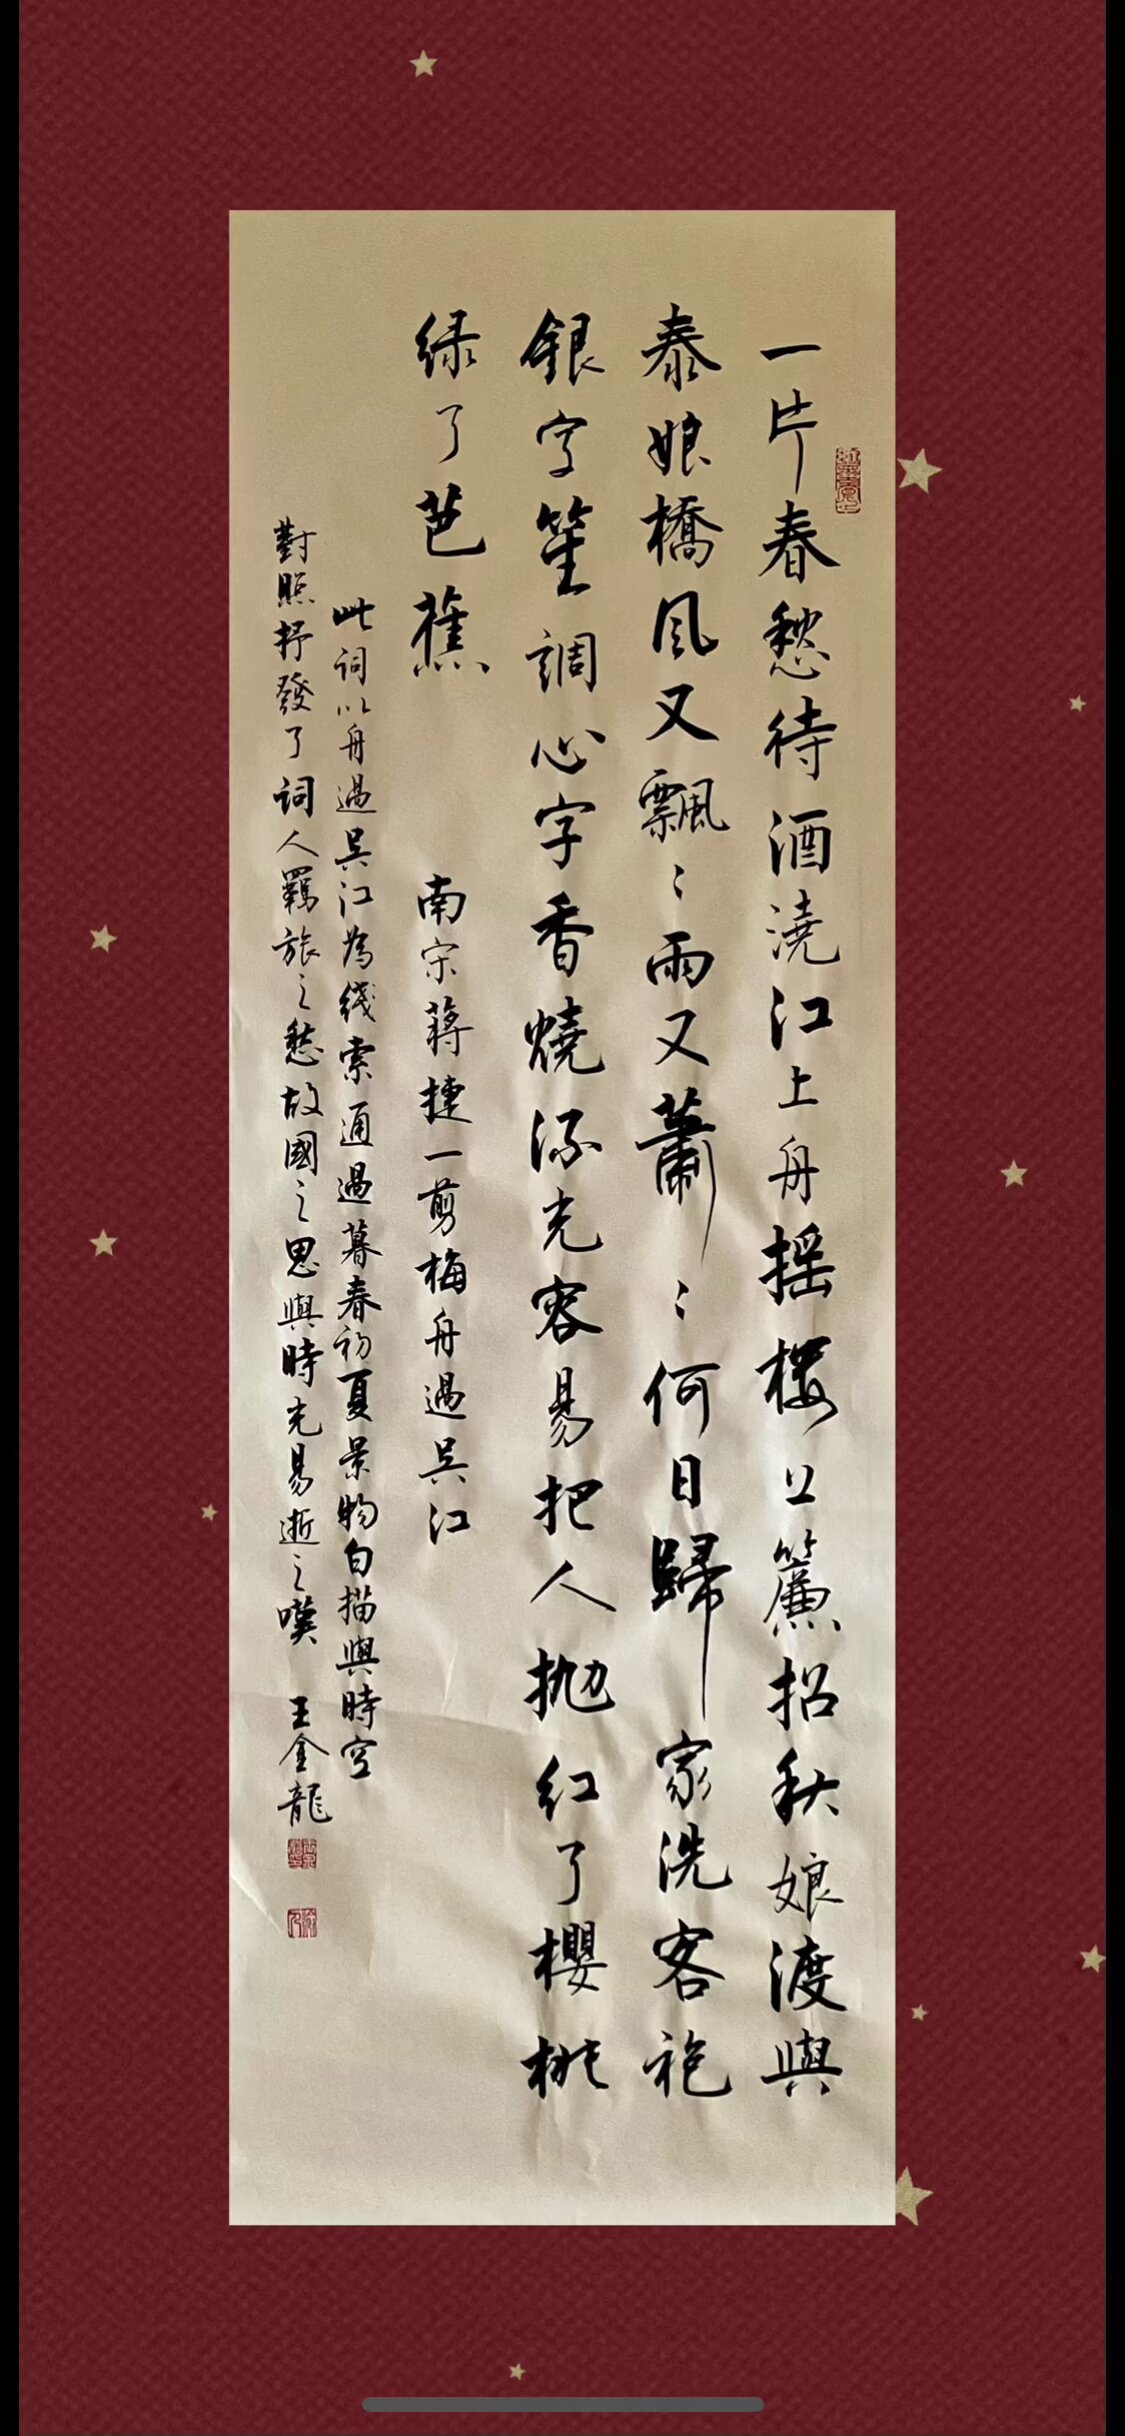 一片春愁待酒澆江上舟摇楼上簾招秋娘渡與
泰娘橋風又飄〻雨又蕭〻何日歸家洗客袍
銀字笙調心字香燒流光容易把人抛紅了櫻桃
绿了芭蕉
南宋蔣捷一剪梅舟過吴江
此词以舟過吴江為线索通過暮春初夏景物白描與時空
對照抒發了词人羈旅之愁故國之思與時光易逝之嘆
王金龍